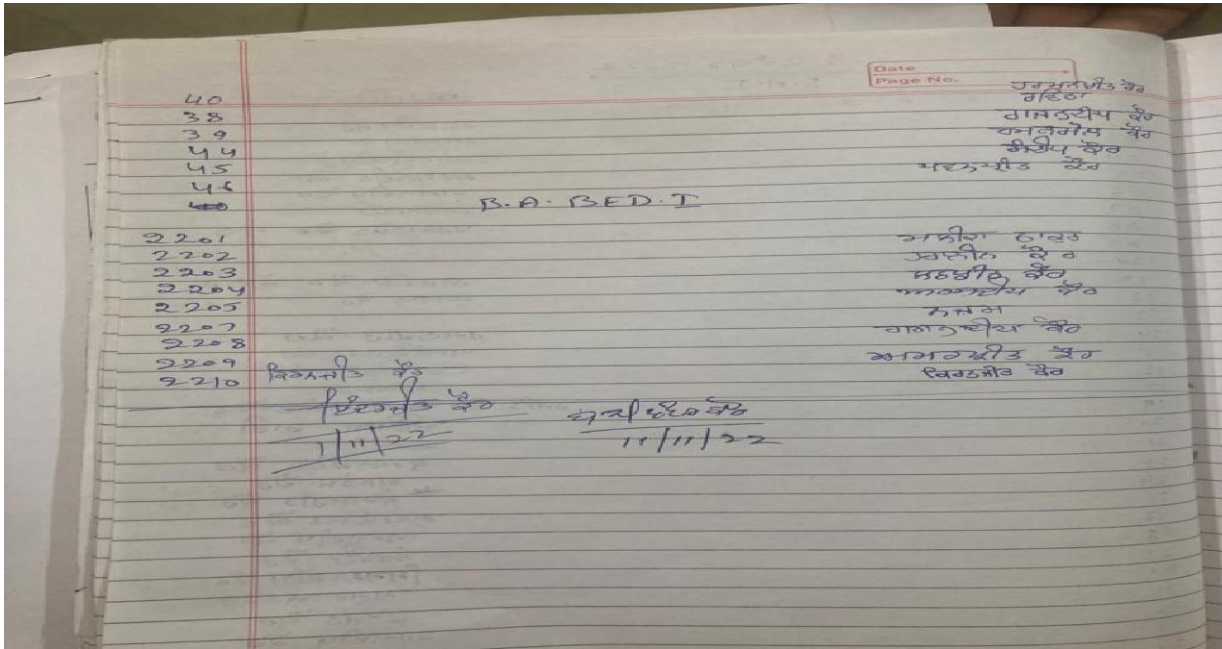 Date
Page No.
40 ਹਰਮਨਜੀਤ ਕੌਰ
38 ਗਵਿਤਾ
39 ਰਾਜਨਦੀਪ ਕੌਰ
44 ਅਨਮੋਲ ਕੌਰ
45 ਸੰਦੀਪ ਕੌਰ
46 ਪਵਨਜੀਤ ਕੌਰ
B.A. BED. I
2201 ਮਨੀਸ਼ਾ ਠਾਕਰ
2202 ਹਰਲੀਨ ਕੌਰ
2203 ਕੌਰ
2204 ਕੌਰ
2205 ਨਜਮਾ
2207 ਗਗਨਦੀਪ ਕੌਰ
2208
2209 ਅਮਰਜੀਤ ਕੌਰ
2210 ਕਿਰਨਜੀਤ ਕੌਰ ਕਿਰਨਜੀਤ ਕੌਰ
ਇੰਦਰਜੀਤ ਕੌਰ ਕੌਰ
1/11/22 11/11/22